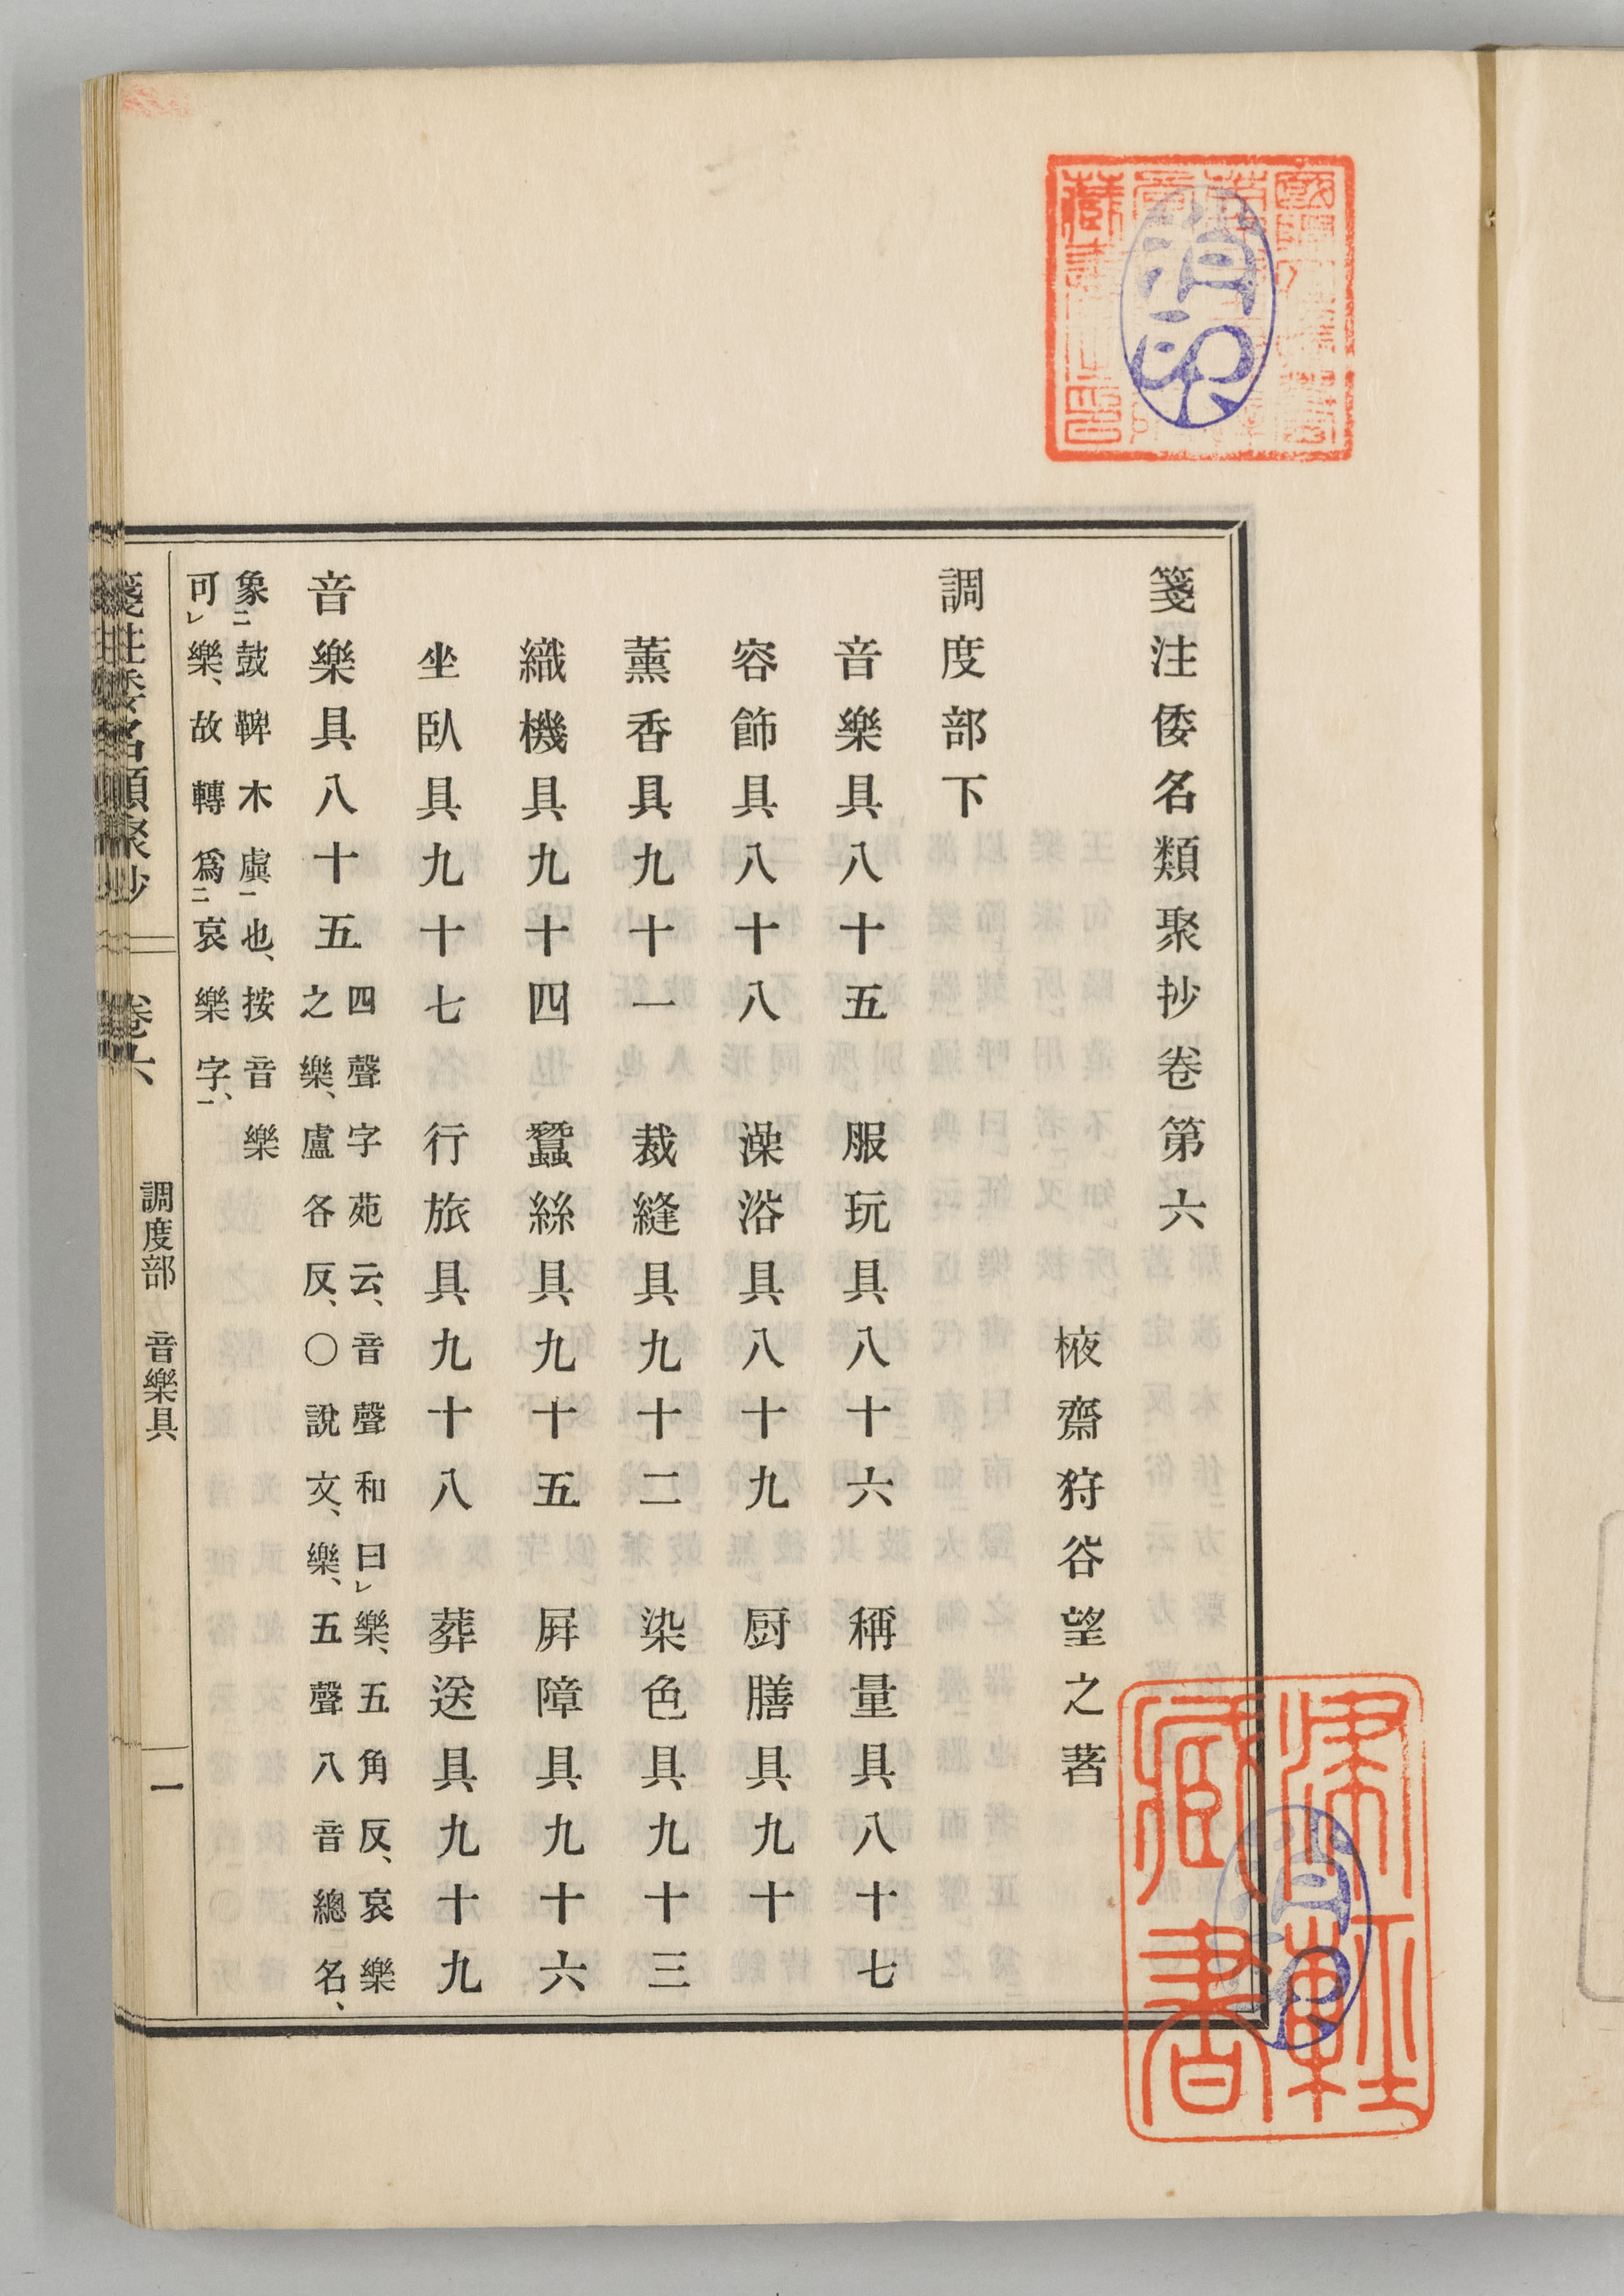 箋注倭名類聚抄卷第六
棭齋狩谷望之著
調度部下
音樂具八十五 服玩具八十六 稱量具八十七
容飾具八十八 澡浴具八十九 厨膳具九十
薰香具九十一 裁縫具九十二 染色具九十三
織機具九十四 蠶絲具九十五 屛障具九十六
坐臥具九十七 行旅具九十八 葬送具九十九
音樂具八十五
四聲字苑云、音聲和曰㆑樂、五角反、哀樂
之樂、盧各反、〇說文、樂、五聲八音總名、
象㆓鼓鞞木虡㆒也、按音樂
可㆑樂、故轉爲㆓哀樂字㆒、
箋注倭名類聚抄 卷六 調度部 音樂具 一
消印
藏書
消印